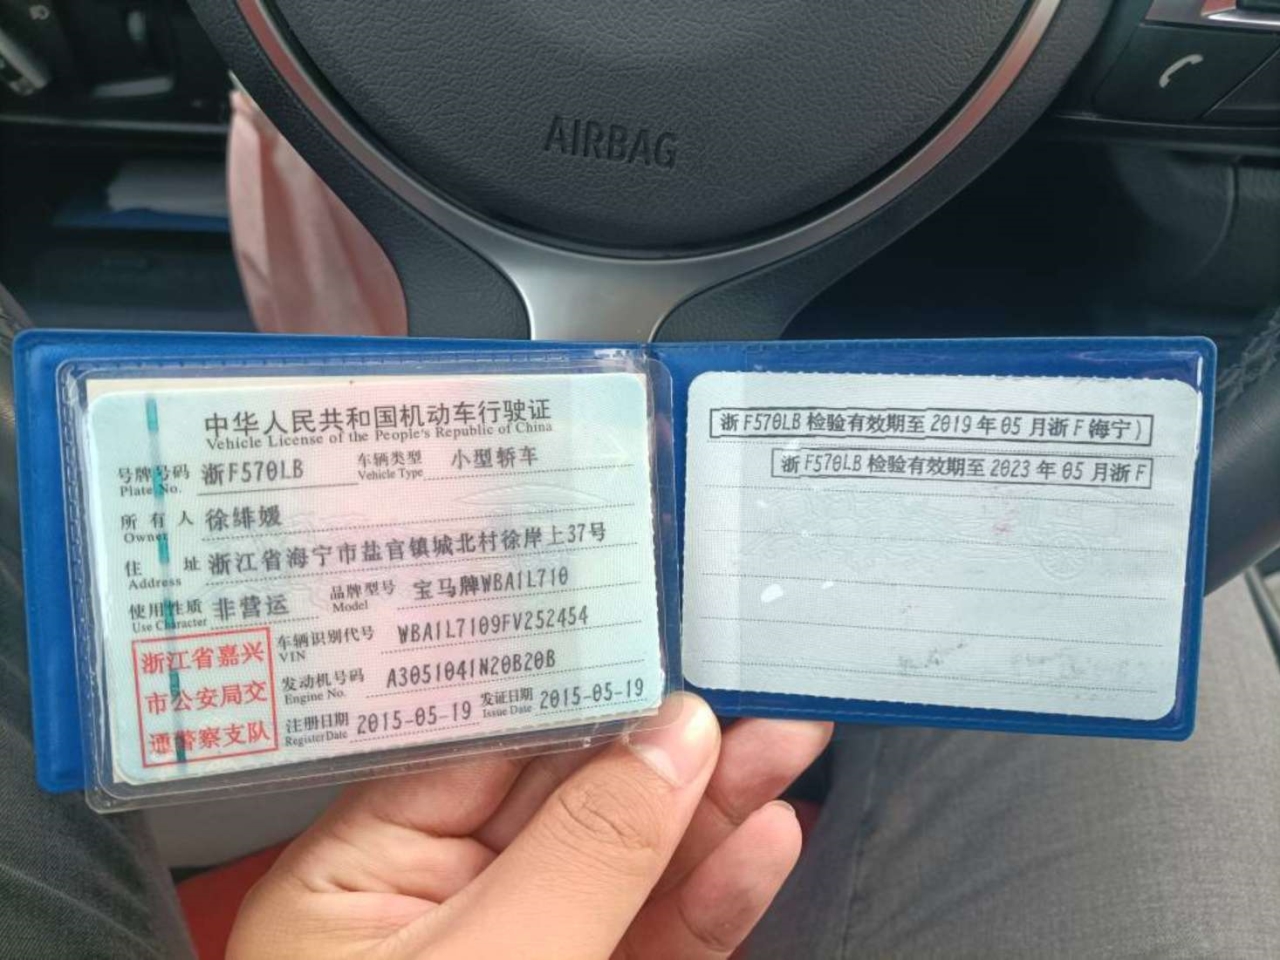 AIRBAG
中华人民共和国机动车行驶证
Vehicle License of the People's Republic of China
号牌号码 浙F570LB 车辆类型 小型轿车
Plate No. Vehicle Type
所有人 徐绯媛
Owner
住址 浙江省海宁市盐官镇城北村徐岸上37号
Address
使用性质 非营运 品牌型号 宝马牌WBA1L710
Use Character Model
浙江省嘉兴
市公安局交
通警察支队
车辆识别代号 WBA1L7109FV252454
VIN
发动机号码 A3051041N20B20B
Engine No.
注册日期 2015-05-19 发证日期 2015-05-19
Register Date Issue Date
浙F570LB检验有效期至2019年05月浙F(海宁)
浙F570LB检验有效期至2023年05月浙F